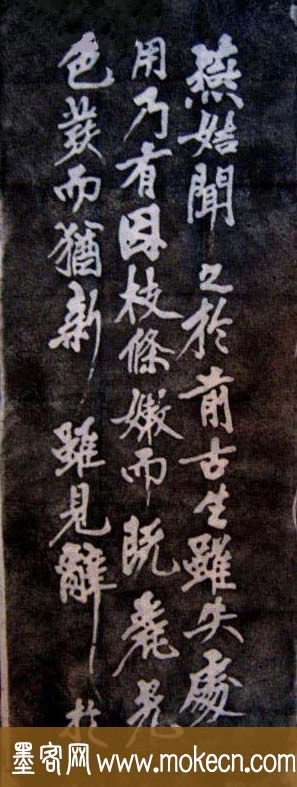 燕姞聞之於前古生雖失處
用乃有因枝條嫩而既麗光
色發而猶新雖見辭於
墨客网 www.mokecn.com